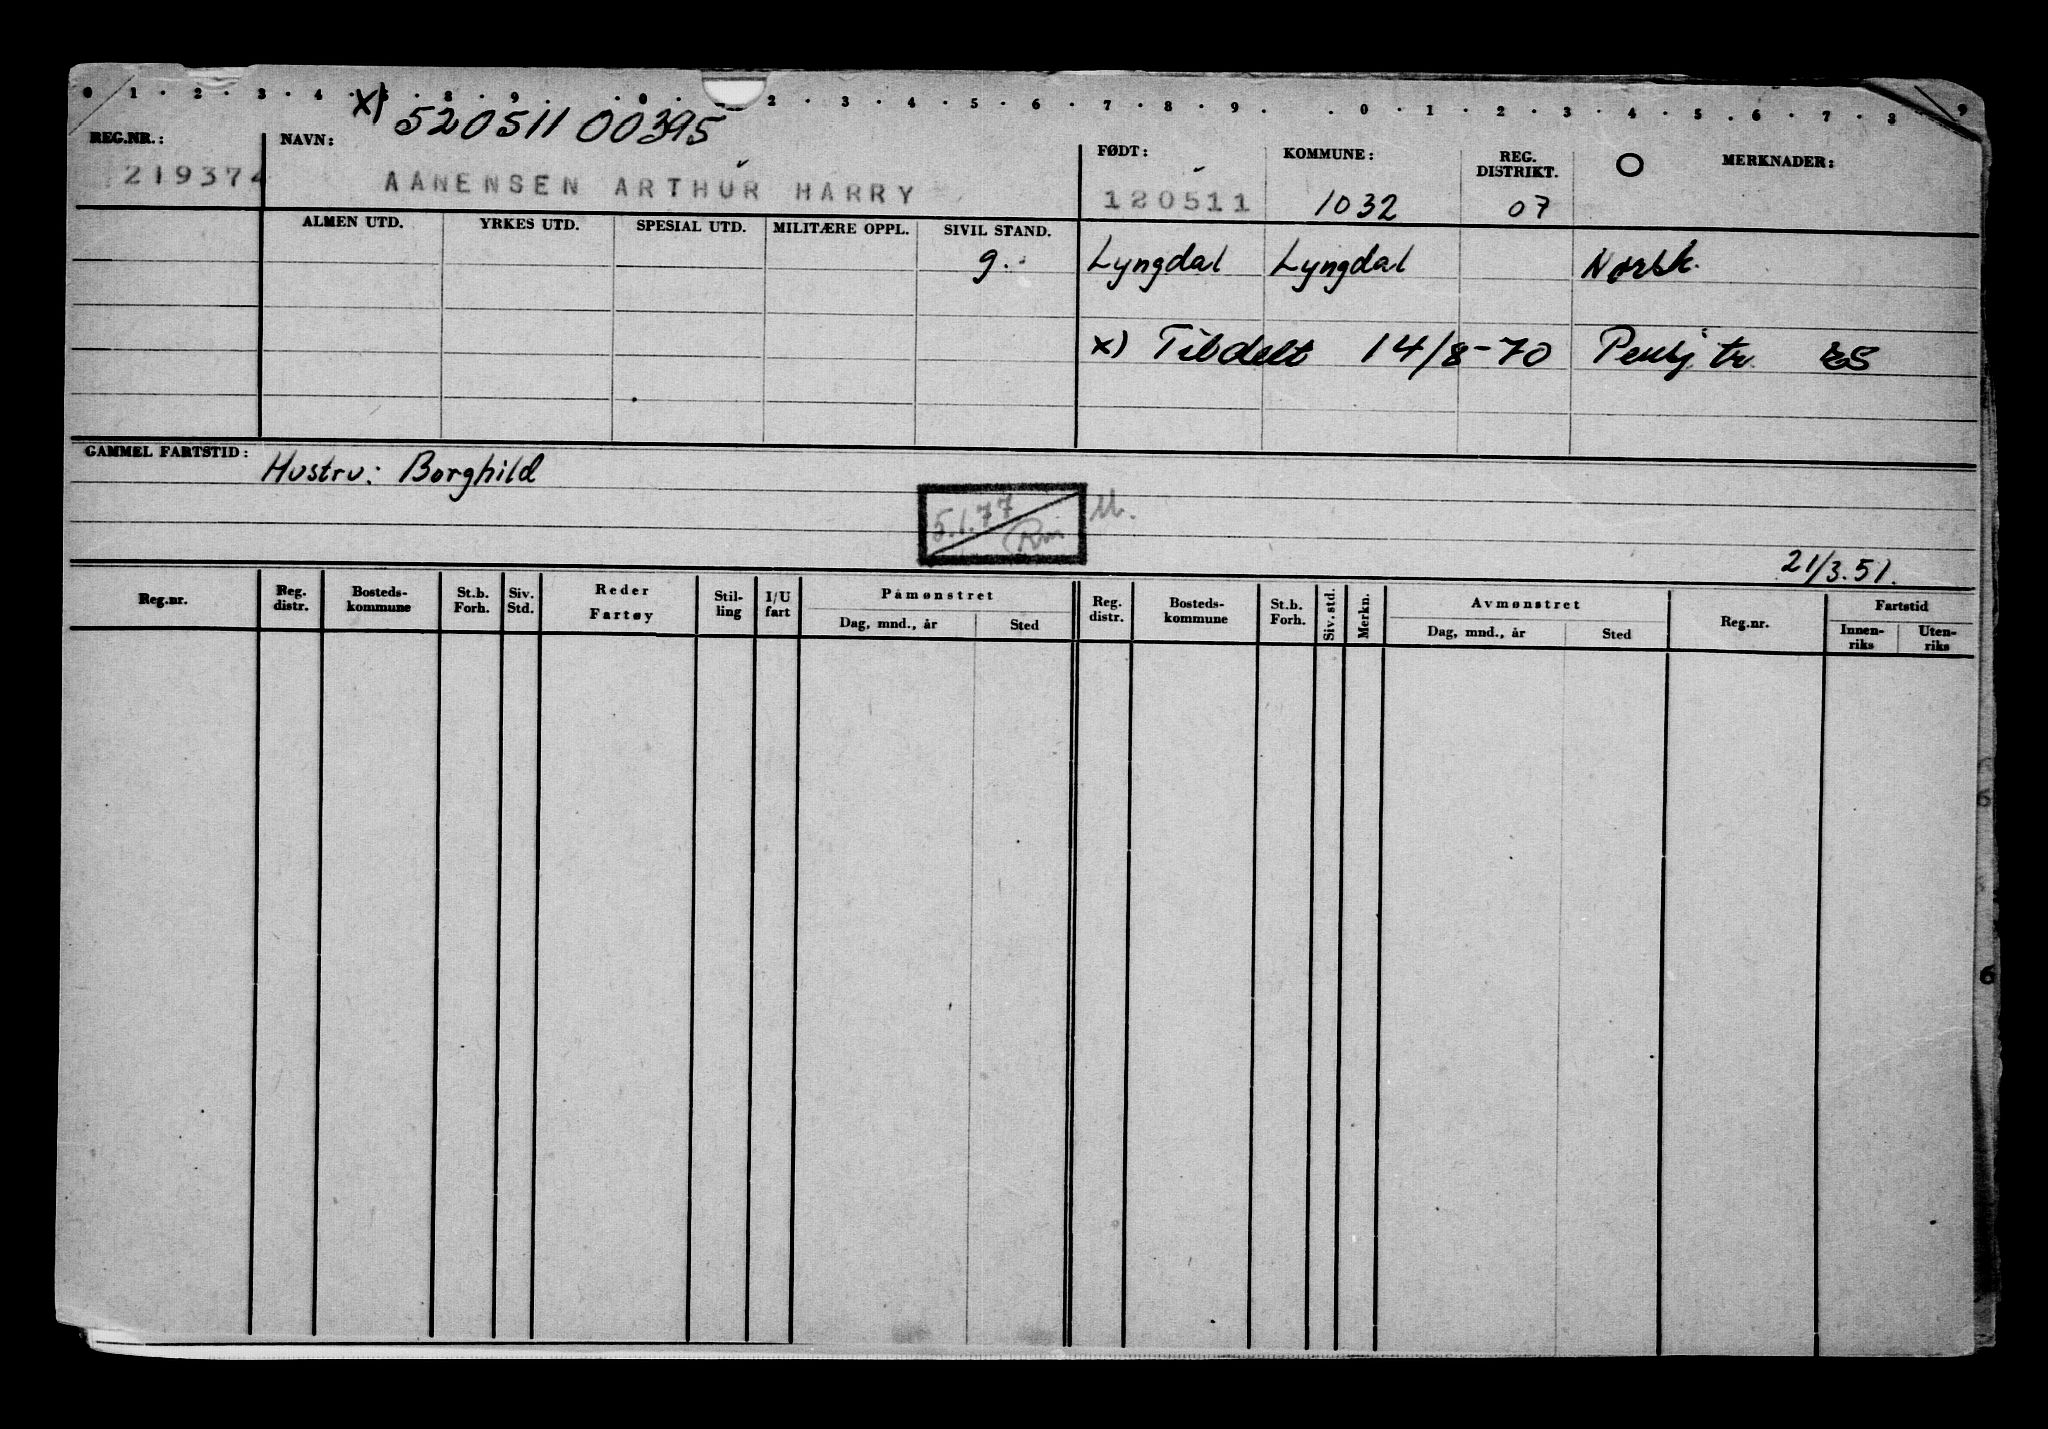 0 · 1 · 2 · 3 · 4 · 5 · 8 · 9 · 0 · 2 · 3 · 4 · 5 · 6 · 7 · 8 · 9 · 0 · 1 · 2 · 3 · 4 · 5 · 6 · 7 · 8 9
x) 520511 00395
REG.NR.: NAVN: FØDT: KOMMUNE: REG. DISTRIKT. O MERKNADER:
219374 AANENSEN ARTHUR HARRY 120511 1032 07
ALMEN UTD. YRKES UTD. SPESIAL UTD. MILITÆRE OPPL. SIVIL STAND.
g. Lyngdal Lyngdal Norsk.
x) Tildelt 14/8-70 Pensj tr ES
GAMMEL FARTSTID: Hustru: Borghild
5.1.77 M.
21/3.51.
Reg.nr. Reg. distr. Bosteds-kommune St.b. Forh. Siv. Std. Reder Fartøy Stil-ling I/U fart Påmønstret Dag, mnd., år Sted Reg. distr. Bosteds-kommune St.b. Forh. Siv. std. Merkn. Avmønstret Dag, mnd., år Sted Reg.nr. Fartstid Innen-riks Uten-riks
6
6